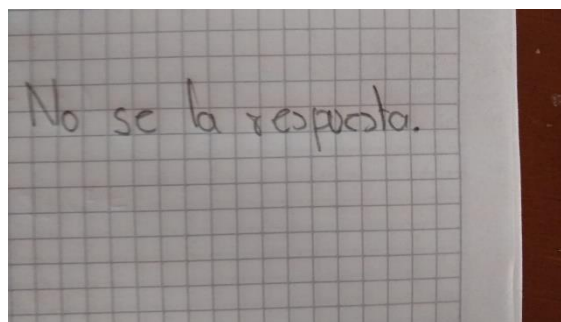 No se la respuesta.